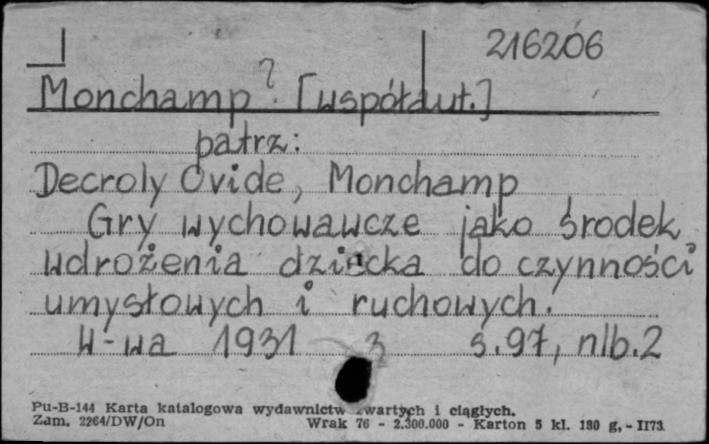 216206
Monchamp ? [współaut.]
patrz:
Decroly Ovide, Monchamp
Gry wychowawcze jako środek
wdrożenia dziecka do czynności
umysłowych i ruchowych.
W-wa 1931 s.97, nlb.2
Pu-B-144 Karta katalogowa wydawnictw zwartych i ciągłych.
Zam. 2264/DW/On Wrak 76 - 2.300.000 - Karton 5 kl. 180 g, - II73